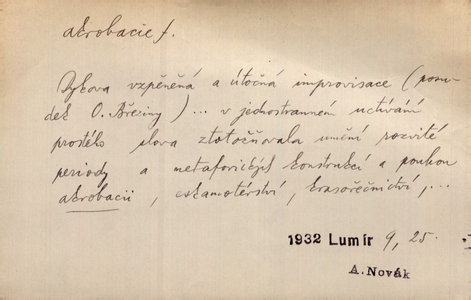 akrobacie f.
Dykova vzpěněná a útočná improvisace (posu-
dek O. Březiny) ... v jednostranném uctívání
prostého slova ztotožňovala umění rozvité
periody a metaforických konstrukcí s pouhou
akrobacií, eskamotérství, krasořečnictví, ...
1932 Lumír 9, 25.
A. Novák